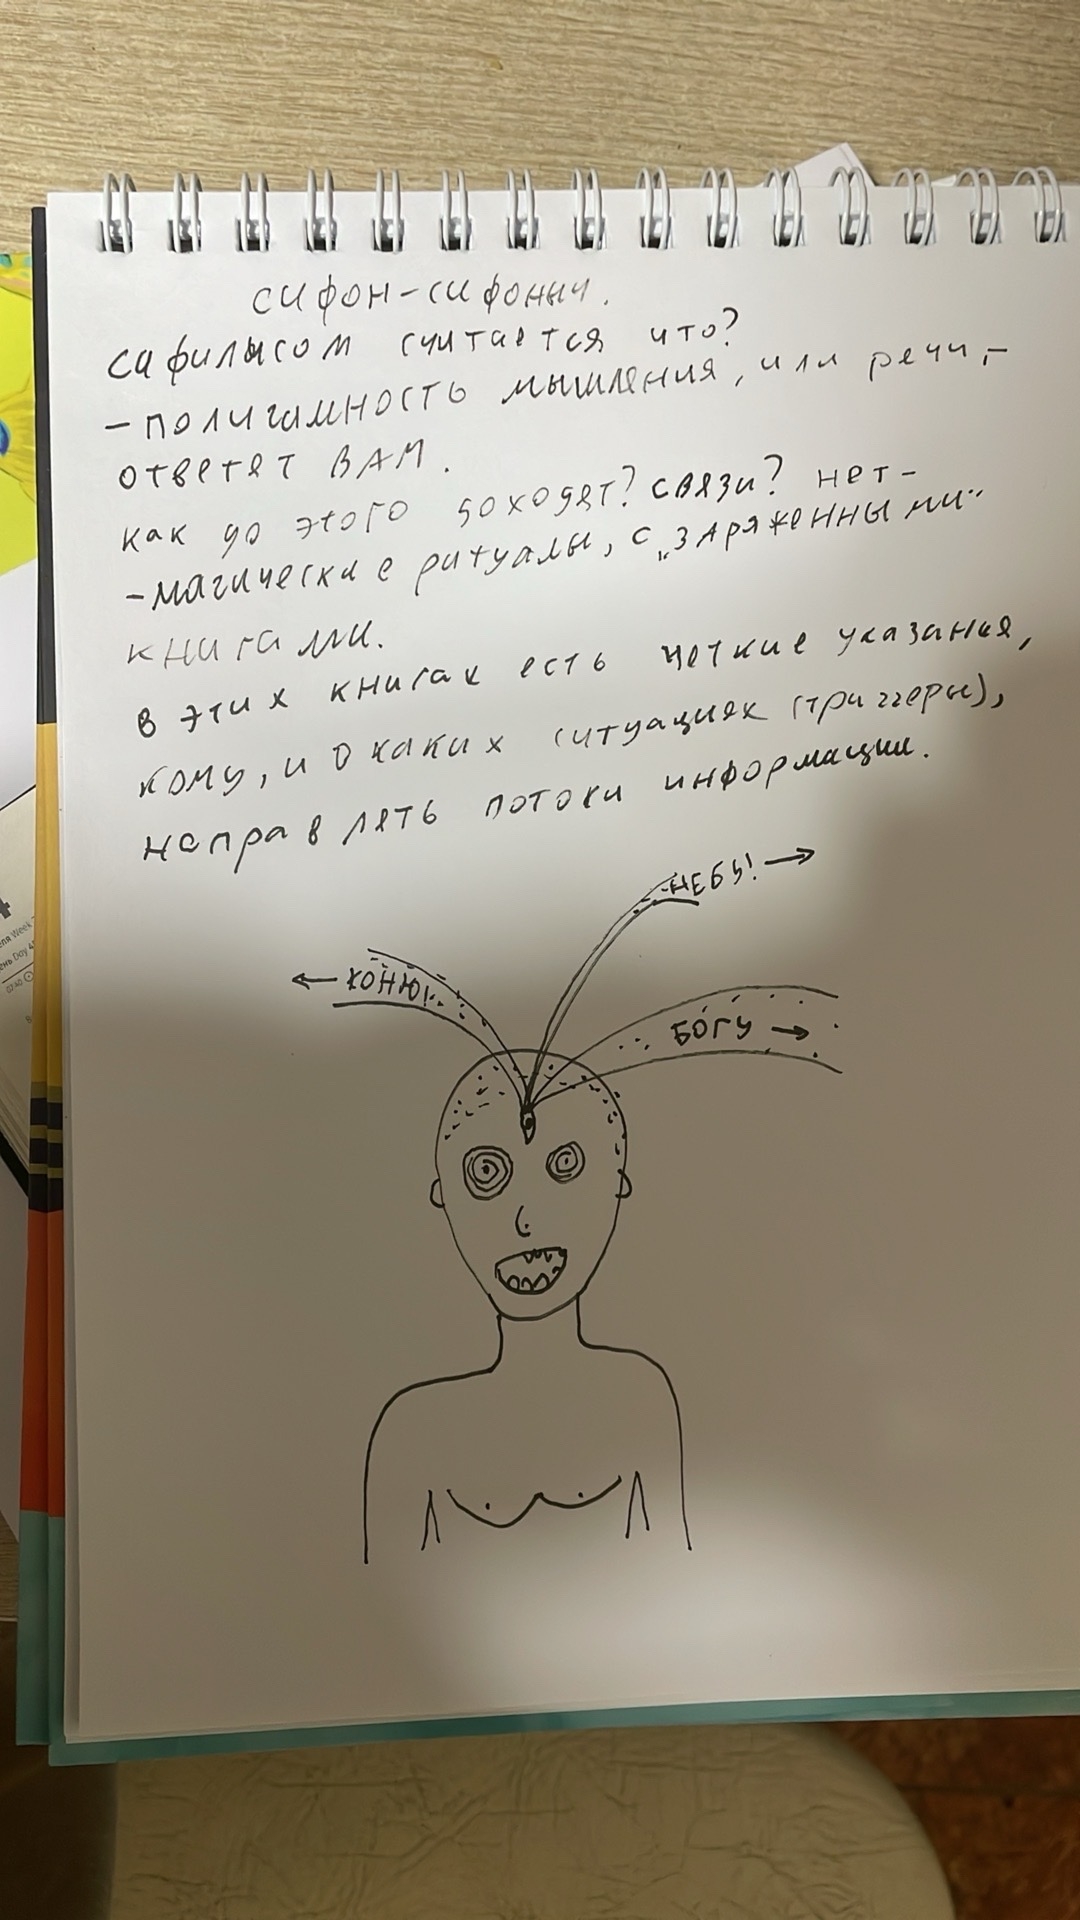 сифон-сифоныч.
сафилысом считается что?
-полигамность мышления, или речи,-
ответят ВАМ.
как до этого доходят? связи? нет-
-магические ритуалы, с „заряженными"
книгами.
в этих книгах есть четкие указания,
кому, и о каких ситуациях (триггеры),
направлять потоки информации.
НЕБУ! →
← КОНЮ!
БОГУ →
Week
Day 4